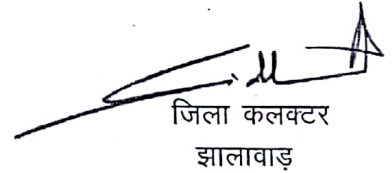 जिला कलक्टर
झालावाड़